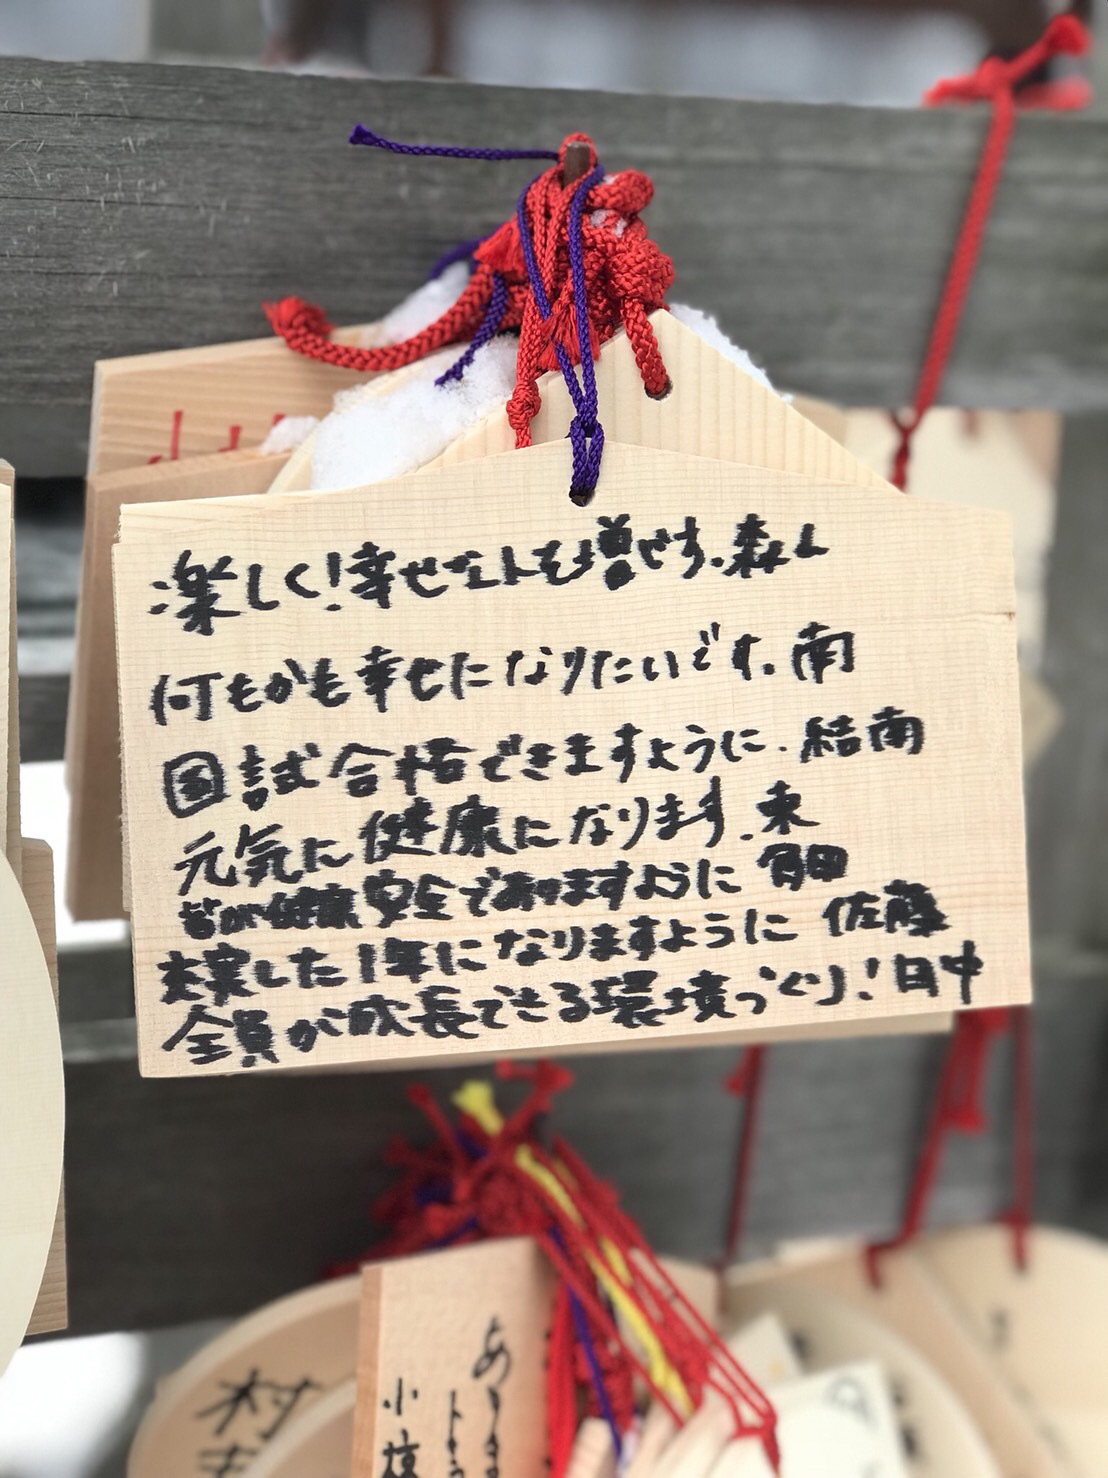 楽しく!幸せな人を増やす.森上
何もかも幸せになりたいです.南
国試合格できますように.結南
元気に健康になります.東
皆が健康安全でありますように 角田
充実した1年になりますように 佐藤
全員が成長できる環境づくり!田中
村
小